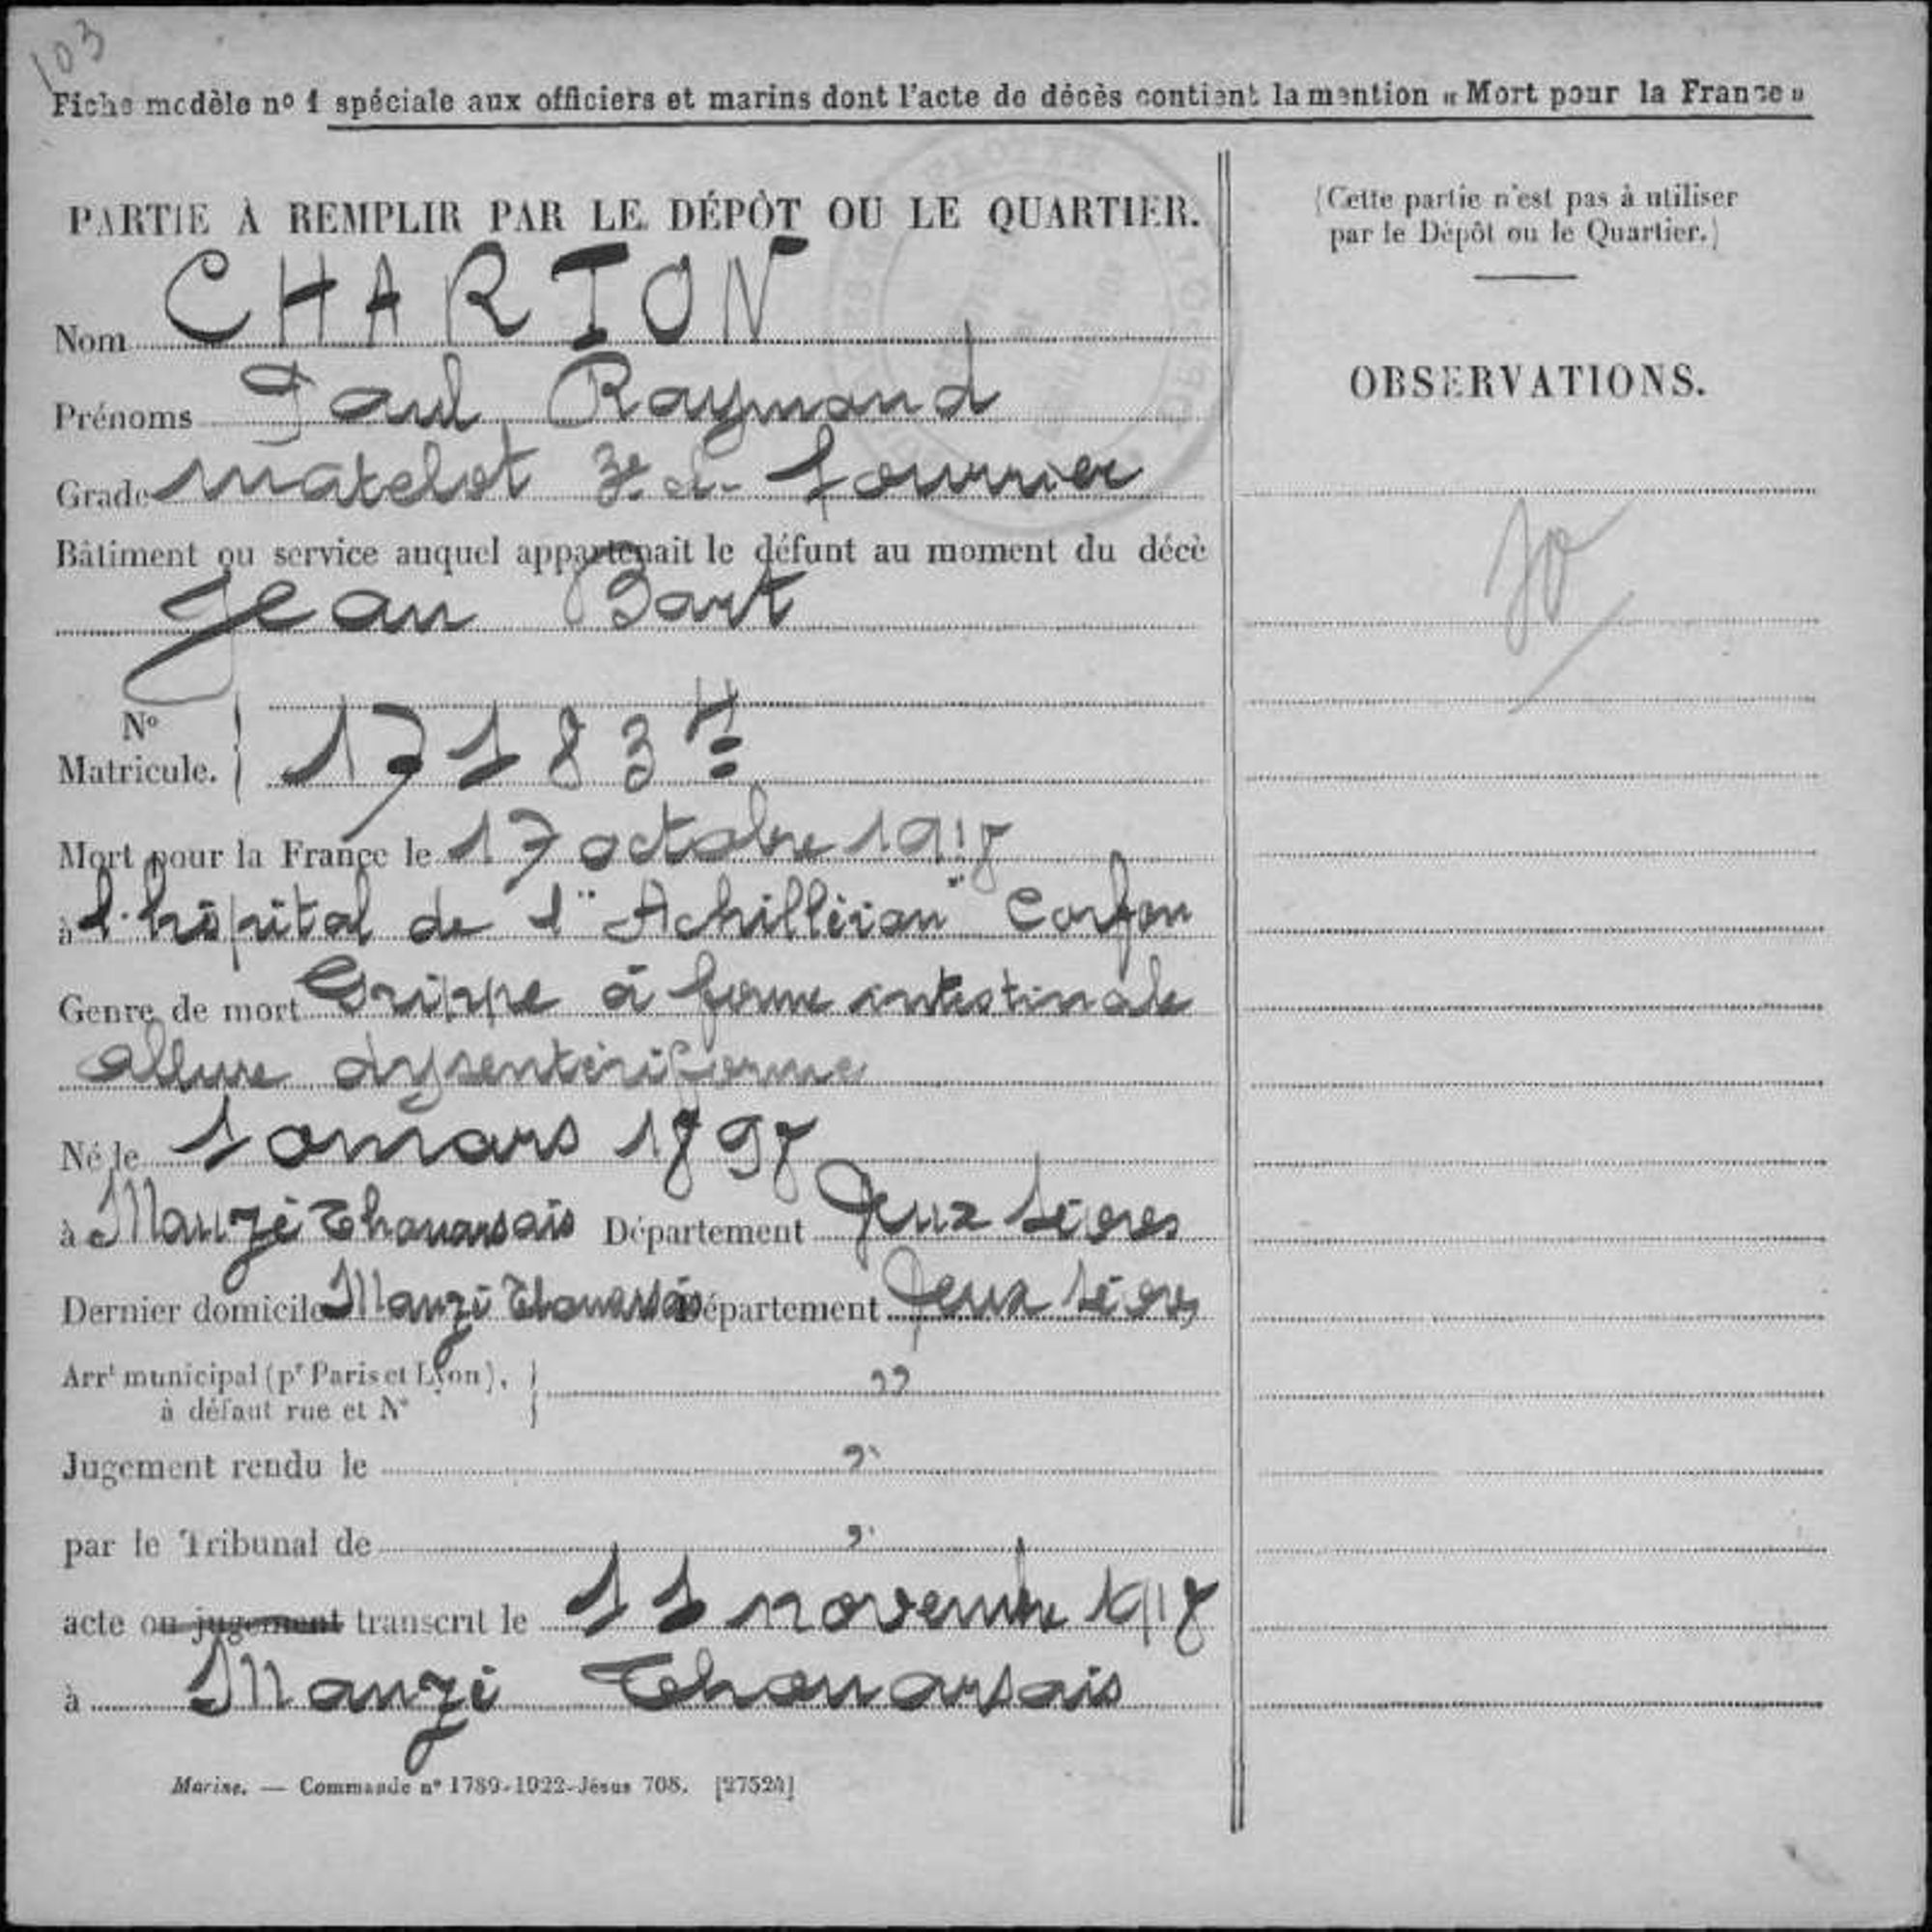 103
Fiche modèle nº 1 spéciale aux officiers et marins dont l'acte de décès contient la mention « Mort pour la France »
PARTIE À REMPLIR PAR LE DÉPÔT OU LE QUARTIER.
Nom CHARTON
Prénoms Paul Raymond
Grade matelot 3e cl. fourrier
Bâtiment ou service auquel appartenait le défunt au moment du décè
Jean Bart
Nº
Matricule. } 17183
Mort pour la France le 17 octobre 1918
à l'hôpital de l'"Achilléion" Corfou
Genre de mort Grippe à forme intestinale
allure dysentériforme
Né le 10 mars 1898
à Mauzé Thouarsais Département Deux Sèvres
Dernier domicile Mauzé Thouarsais Département Deux Sèvres
Arrt municipal (pr Paris et Lyon), } "
à défaut rue et Nº
Jugement rendu le "
par le Tribunal de "
acte ou jugement transcrit le 11 novembre 1918
à Mauzé Thouarsais
Marine. — Commande nº 1789-1922-Jésus 708. [27524]
(Cette partie n'est pas à utiliser
par le Dépôt ou le Quartier.)
OBSERVATIONS.